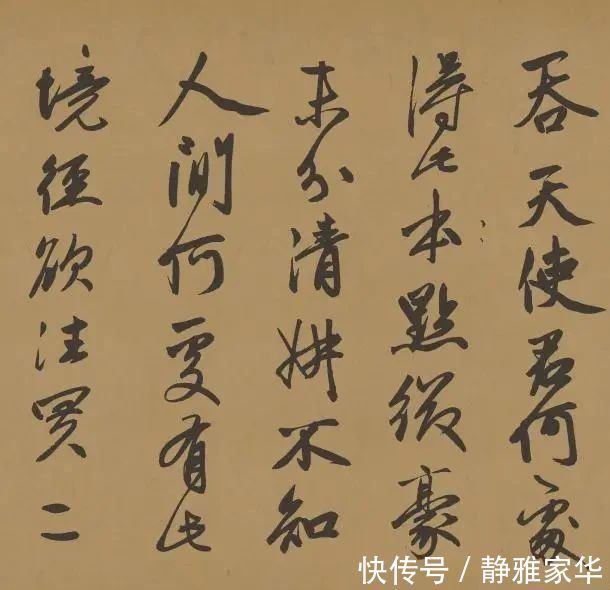 吞天使君何處
得此本點綴豪
末分清妍不知
人間何處有此
境徑欲往買二
快传号 / 静雅家华